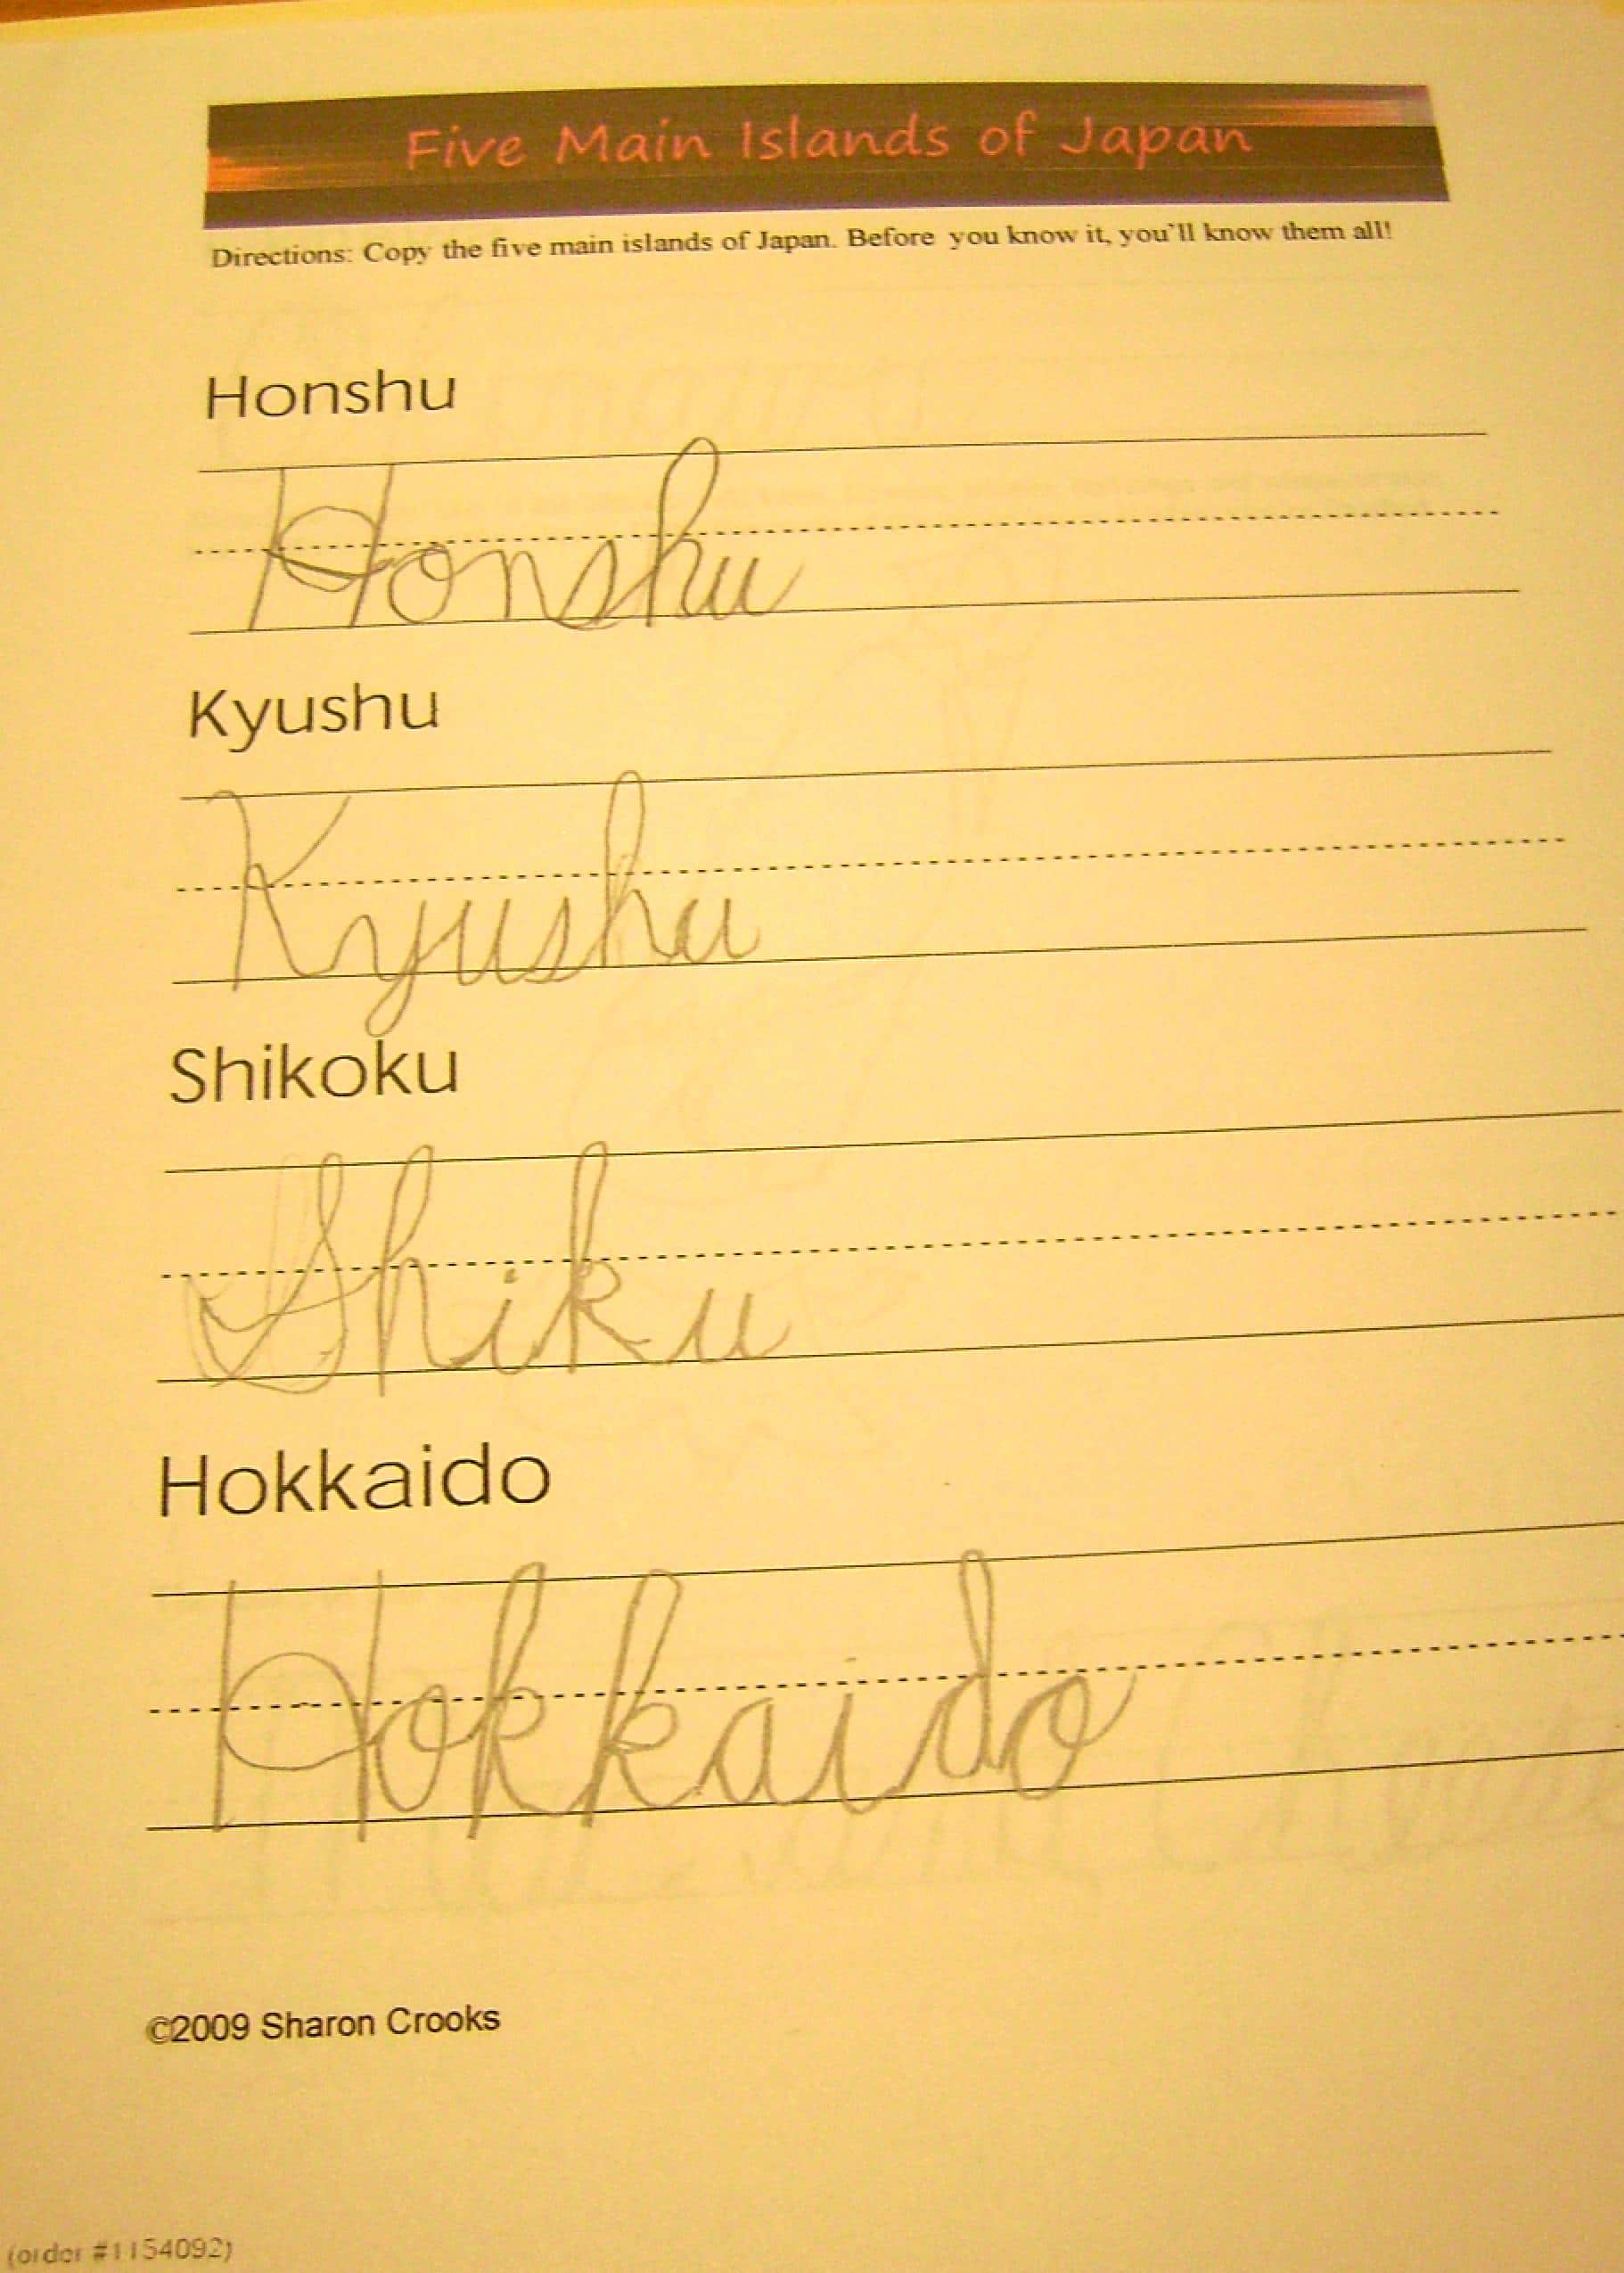 Five Main Islands of Japan
Directions: Copy the five main islands of Japan. Before you know it, you'll know them all!
Honshu
Honshu
Kyushu
Kyushu
Shikoku
Shiku
Hokkaido
Hokkaido
©2009 Sharon Crooks
(order #1154092)